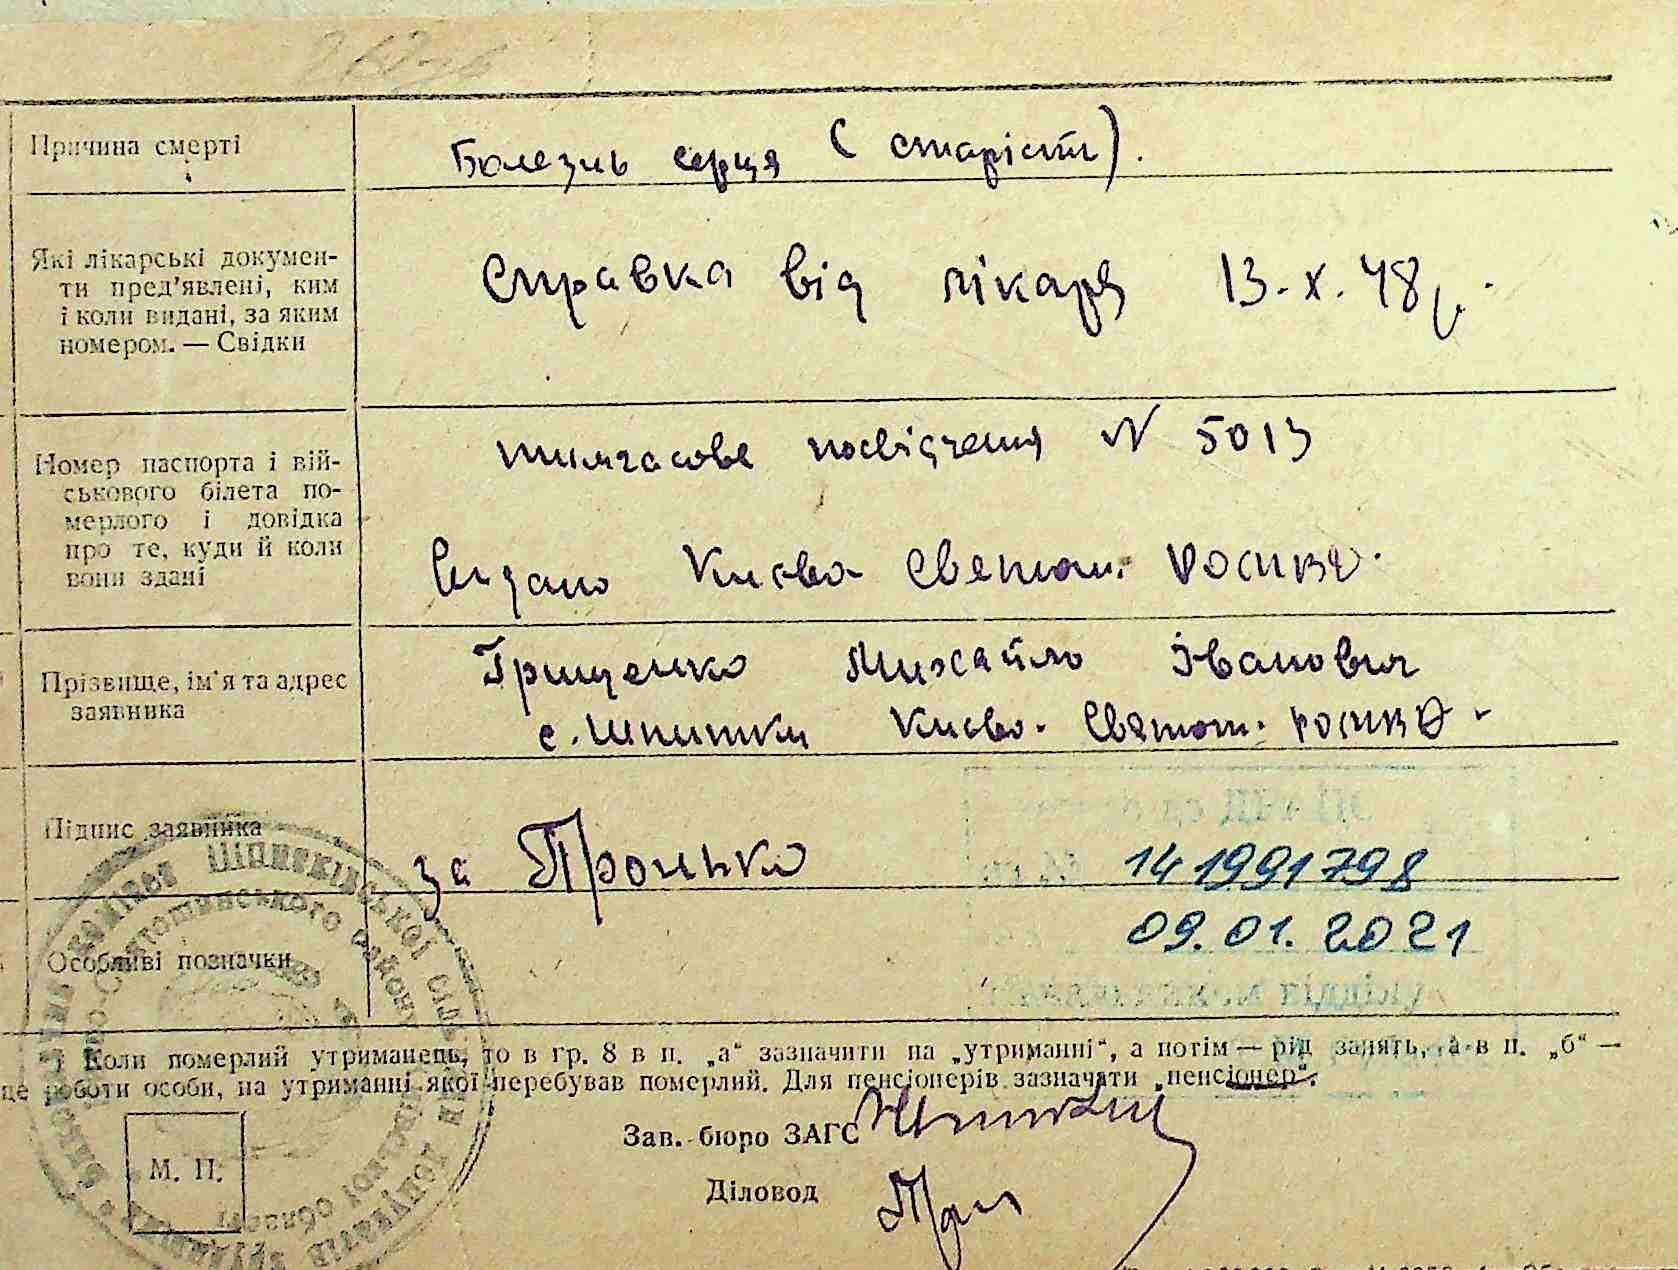 Причина смерті
Болезнь серця (старість).
Які лікарські докумен-
ти пред'явлені, ким
і коли видані, за яким
номером. — Свідки
Справка від лікаря 13.X.48р.
Номер паспорта і вій-
ськового білета по-
мерлого і довідка
про те, куди й коли
вони здані
тимчасове посвідчення N 5013
Видано Києво-Святош. РОСИВО.
Прізвище, ім'я та адрес
заявника
Грищенко Михайло Іванович
с. Шпитьки Києво-Святош. РОСИВО-
Підпис заявника
за Пронько
141991798
09.01.2021
Особливі позначки
Коли померлий утриманець, то в гр. 8 в п. „а“ зазначити на „утриманні“, а потім — рід занять, а в п. „б“ —
це роботи особи, на утриманні якої перебував померлий. Для пенсіонерів зазначати „пенсіонер“.
Зав. бюро ЗАГС
Діловод
М. П.
сільської
Святошинського району
депутатів трудящих
області